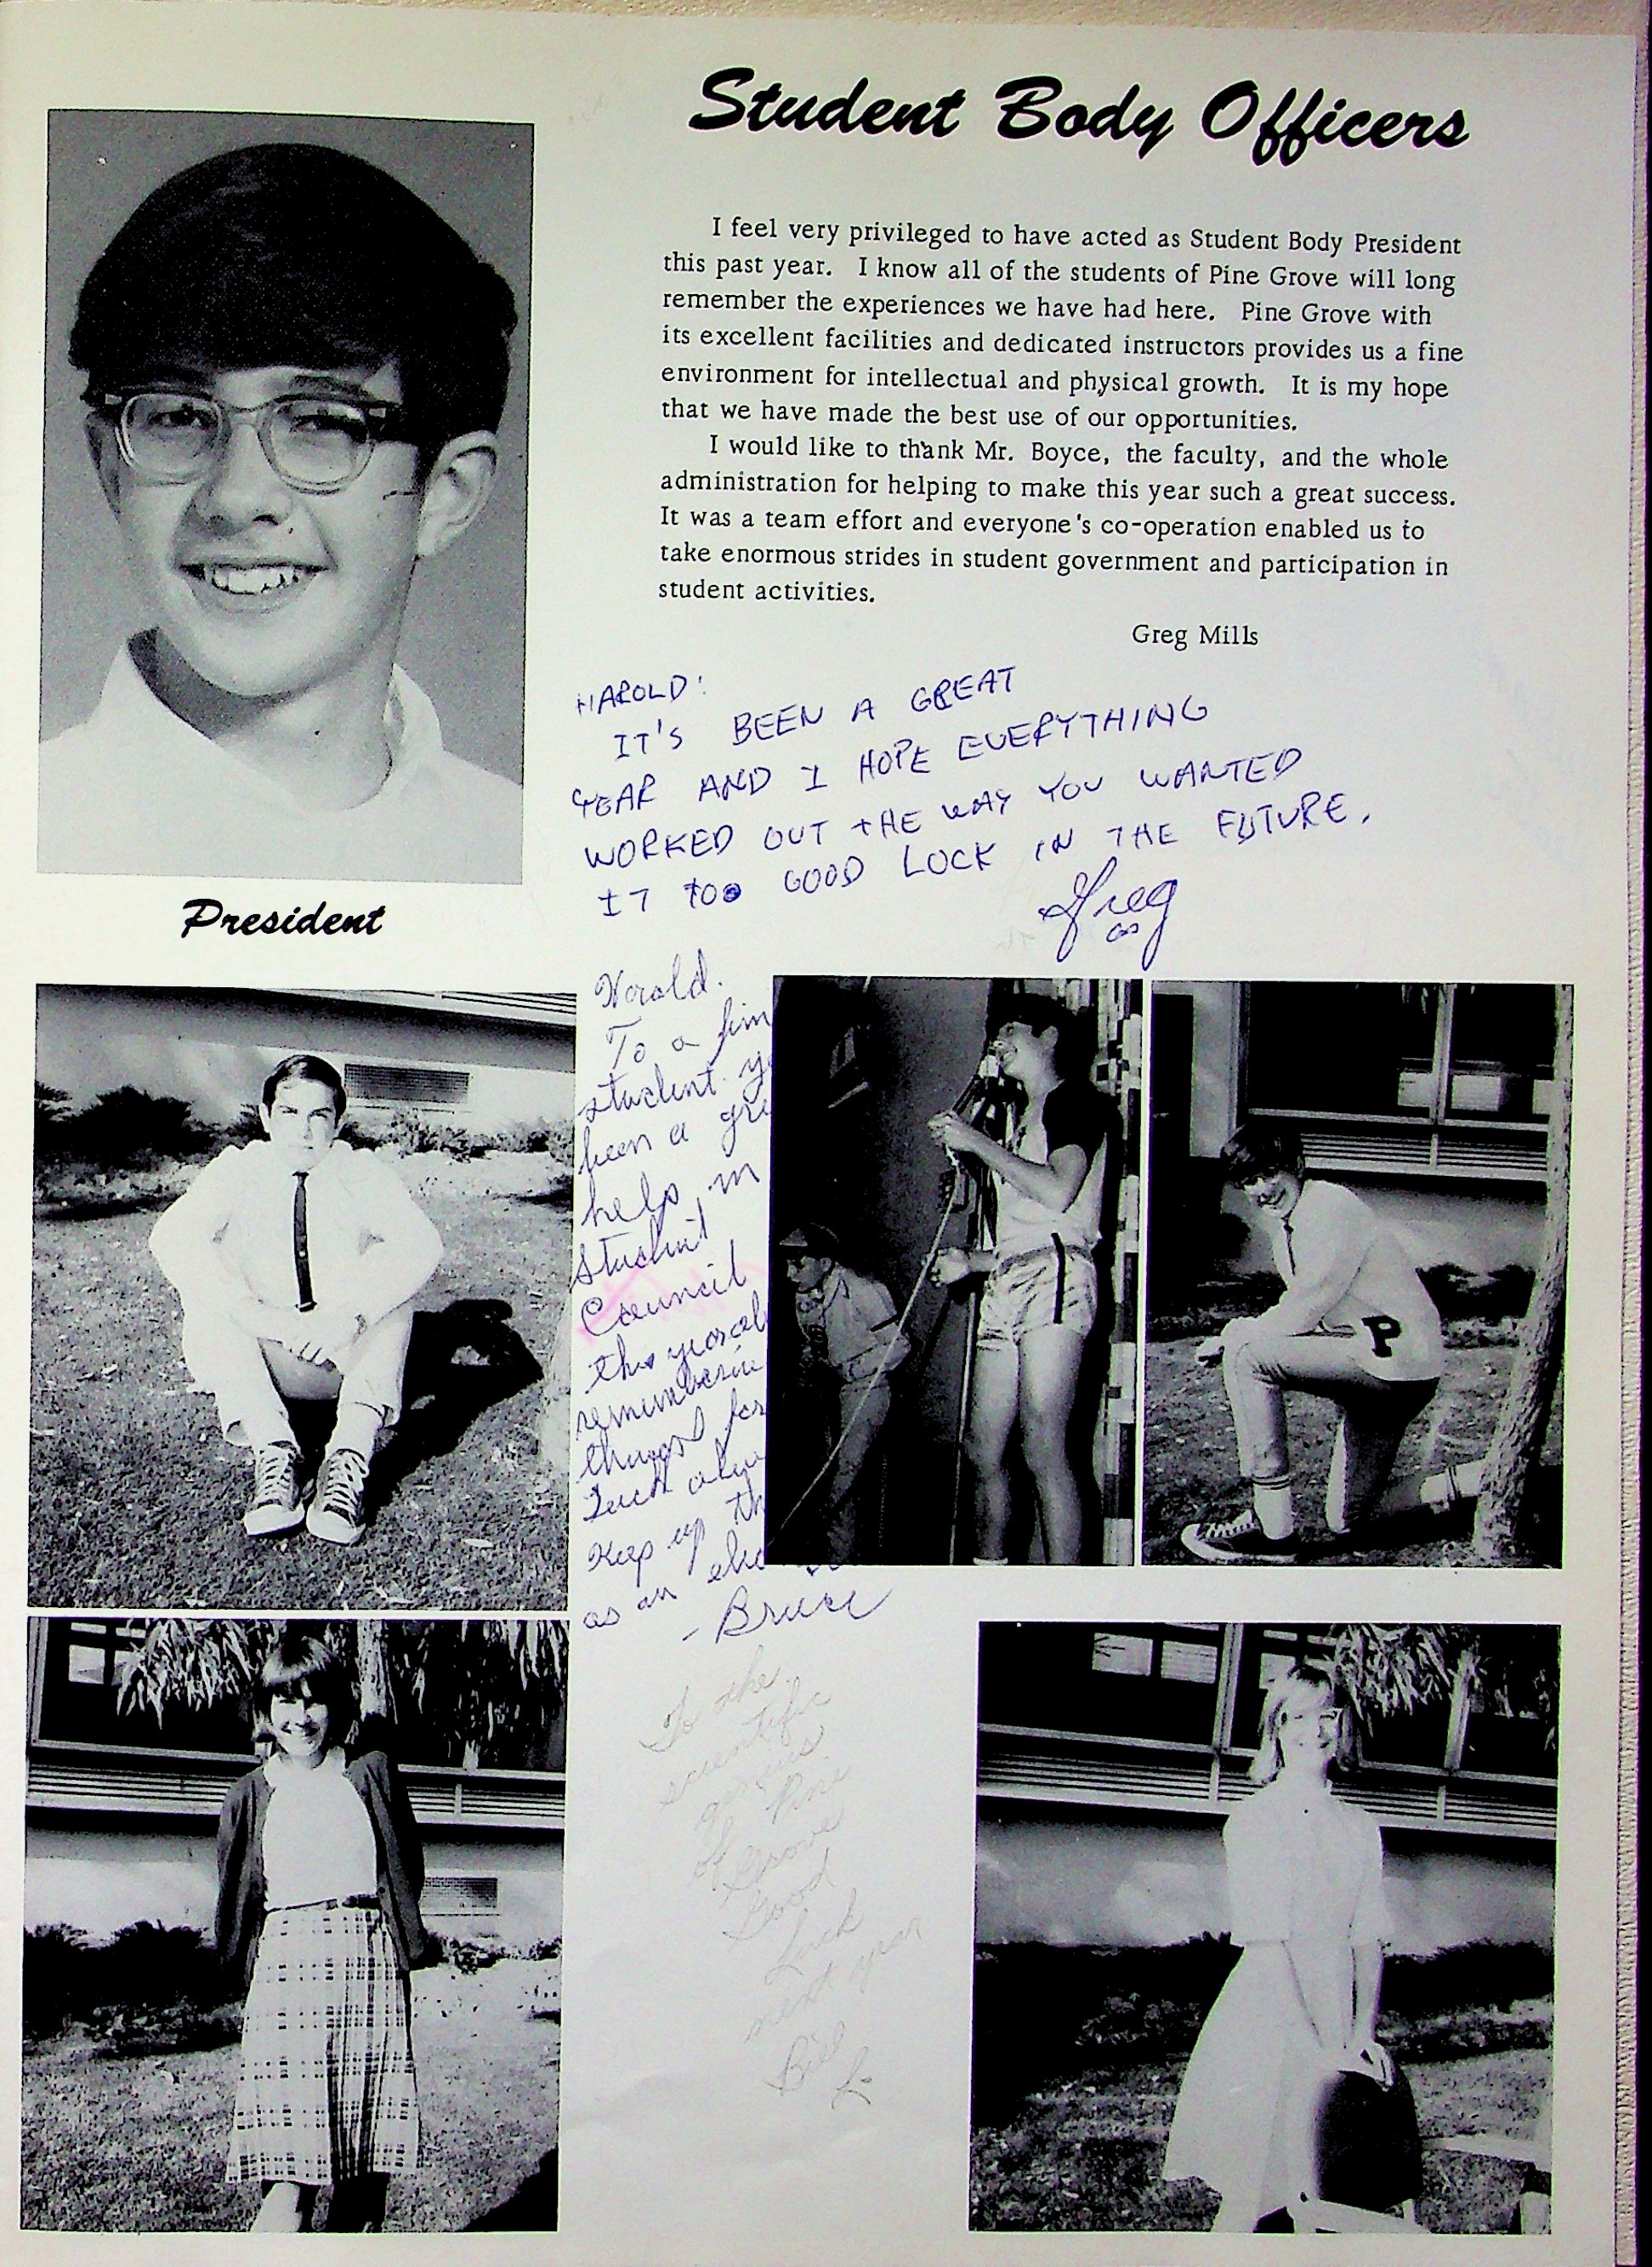 Student Body Officers
I feel very privileged to have acted as Student Body President
this past year. I know all of the students of Pine Grove will long
remember the experiences we have had here. Pine Grove with
its excellent facilities and dedicated instructors provides us a fine
environment for intellectual and physical growth. It is my hope
that we have made the best use of our opportunities.
I would like to thank Mr. Boyce, the faculty, and the whole
administration for helping to make this year such a great success.
It was a team effort and everyone's co-operation enabled us to
take enormous strides in student government and participation in
student activities.
Greg Mills
HAROLD:
IT'S BEEN A GREAT
YEAR AND I HOPE EVERYTHING
WORKED OUT THE WAY YOU WANTED
IT TOO GOOD LUCK IN THE FUTURE.
Greg
President
Harold.
To a
student.
been a
help in
Student
Council
this year
Luck
Keep up
as an
-Bruce
P
To the
scientific
genius
of Pine
Grove
Good
Luck
next year
Bill
L.